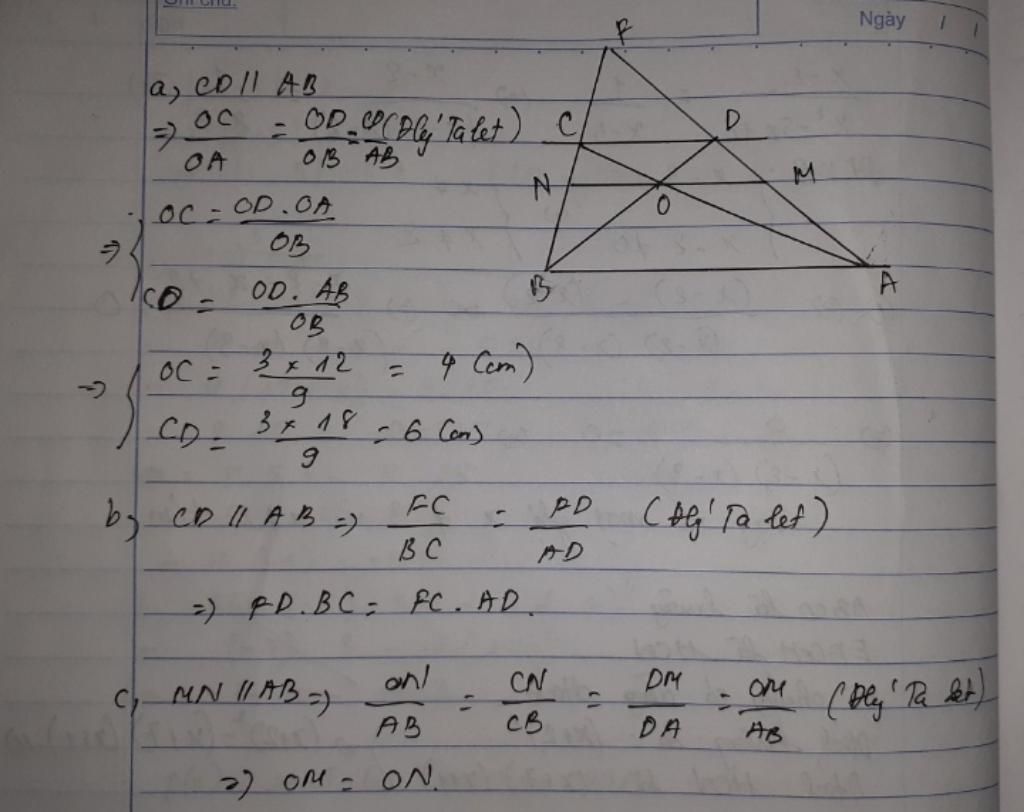 Ghi chú:
Ngày / /
F
C D
N M
O
B A
a, CD // AB
=> OC/OA = OD/OB = CD/AB (Đlý Talet)
=> { OC = OD . OA / OB
CD = OD . AB / OB
=> { OC = 3 x 12 / 9 = 4 (cm)
CD = 3 x 18 / 9 = 6 (cm)
b, CD // AB => FC/BC = FD/AD (Đlý Ta let)
=> FD.BC = FC.AD.
c, MN // AB => ON/AB = CN/CB = DM/DA = OM/AB (Đlý Ta let)
=> OM = ON.